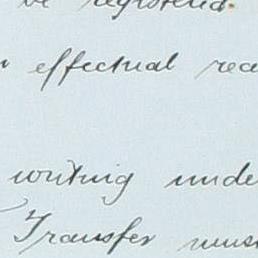 be registered.
effectual rec
writing unde
Transfer mus